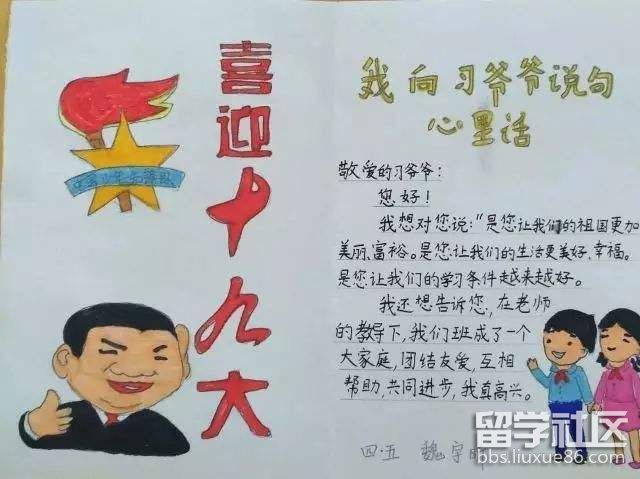 喜迎十九大
中国少年先锋队
我向习爷爷说句
心里话
敬爱的习爷爷：
您好！
我想对您说："是您让我们的祖国更加
美丽、富裕。是您让我们的生活更美好、幸福。
是您让我们的学习条件越来越好。
我还想告诉您，在老师
的教导下，我们班成了一个
大家庭，团结友爱，互相
帮助，共同进步，我真高兴。
四·五 魏宇
留学社区
bbs.liuxue86.com